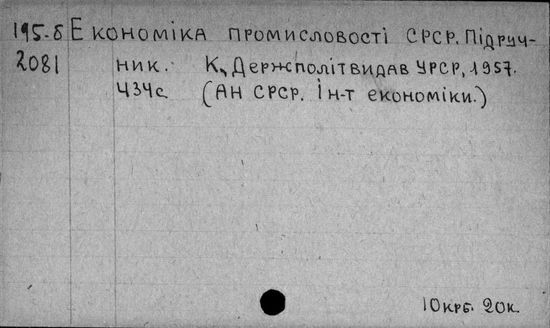 195-б Економіка промисловості СРСР. Підруч-
2081 ник. К., Держполітвидав УРСР, 1957.
434с. (АН СРСР. Ін-т економіки.)
10крб. 20к.